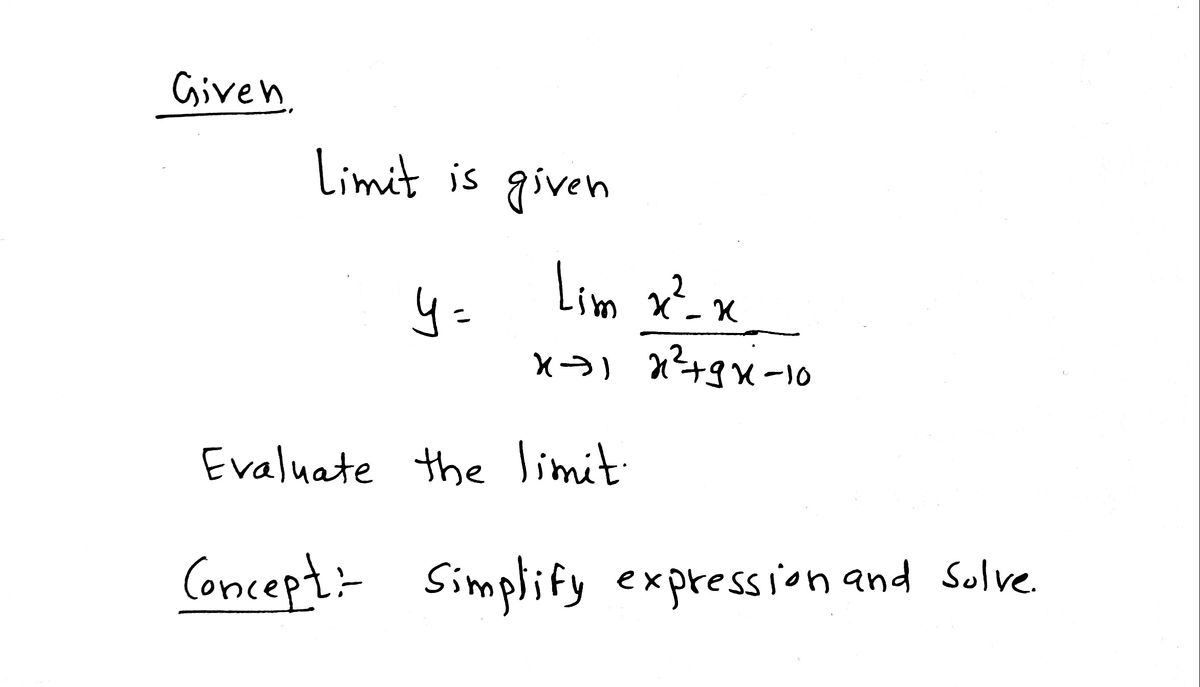 Given.
Limit is given
y = Lim x² - x
x→1 x²+9x-10
Evaluate the limit.
Concept:- Simplify expression and Solve.